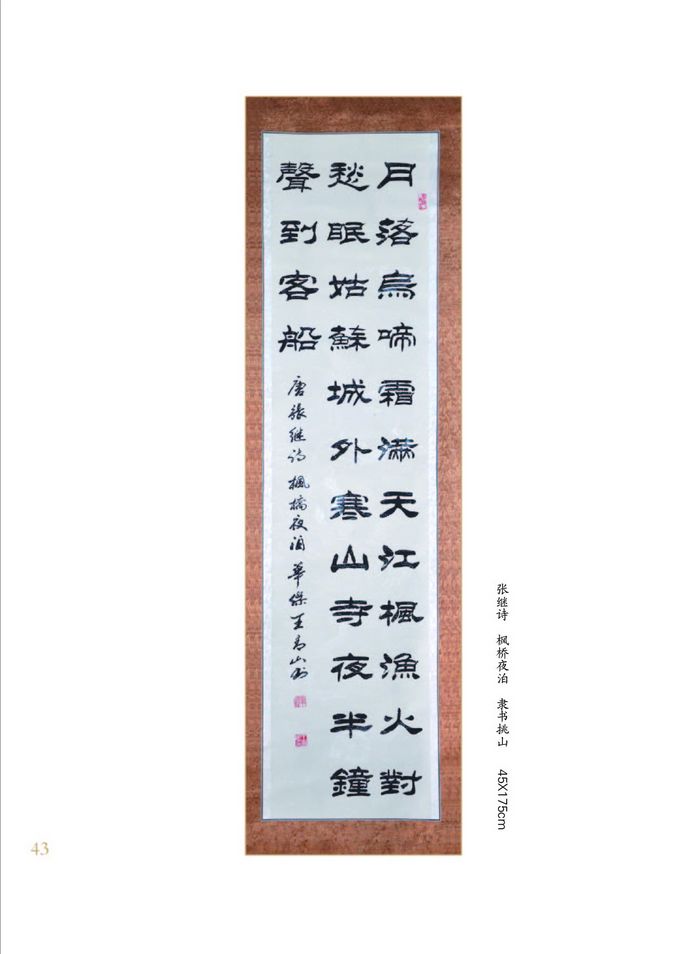 月落烏啼霜滿天江楓漁火對
愁眠姑蘇城外寒山寺夜半鐘
聲到客船
唐張继诗楓橋夜泊 王山书
张继诗 枫桥夜泊 隶书挑山 45X175cm
43